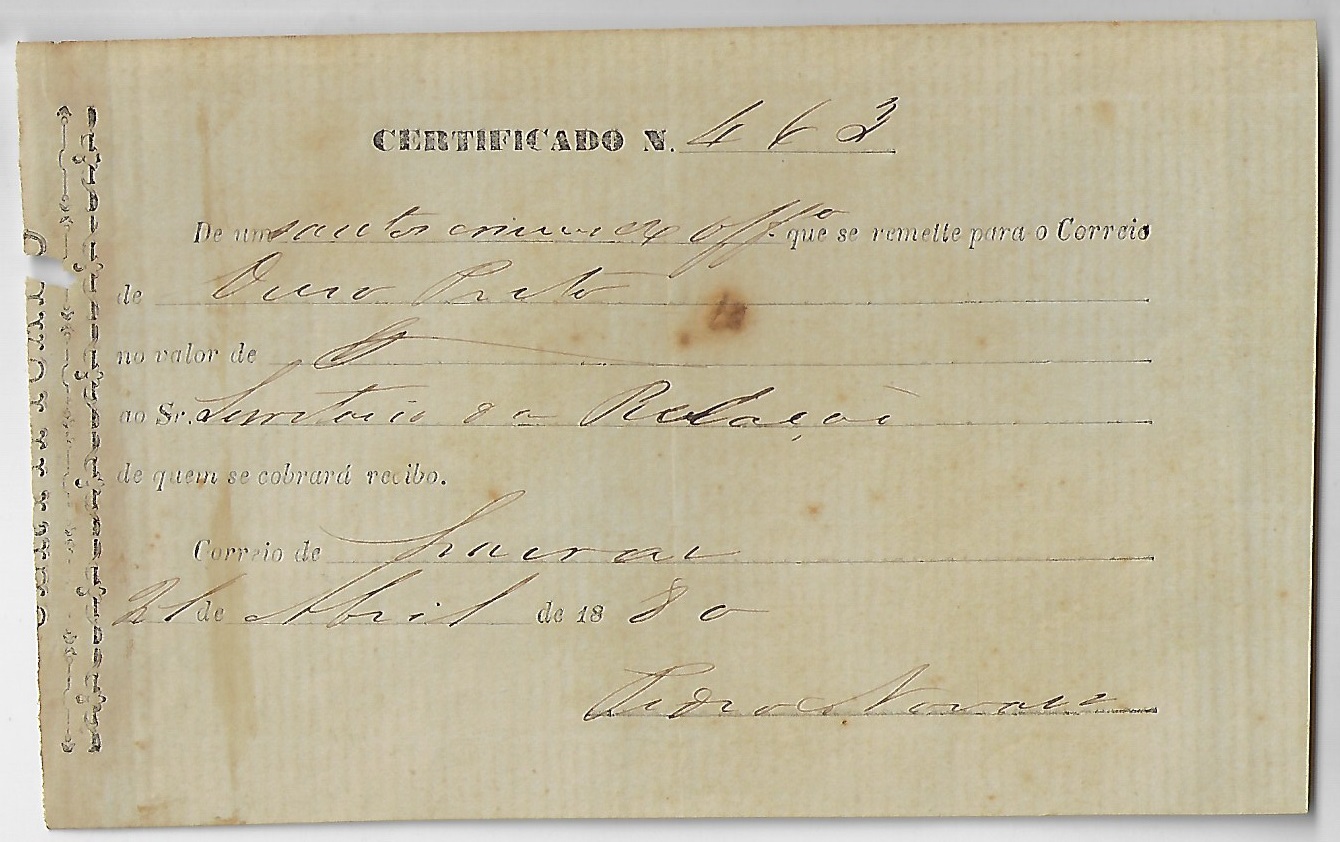 CERTIFICADO N. 463
De uns autos crimes ex offo. que se remette para o Correio
de Ouro Preto
no valor de
ao Sr. Secretario da Relação
de quem se cobrará recibo.
Correio de
21 de Abril de 1880
Pedro Novaes